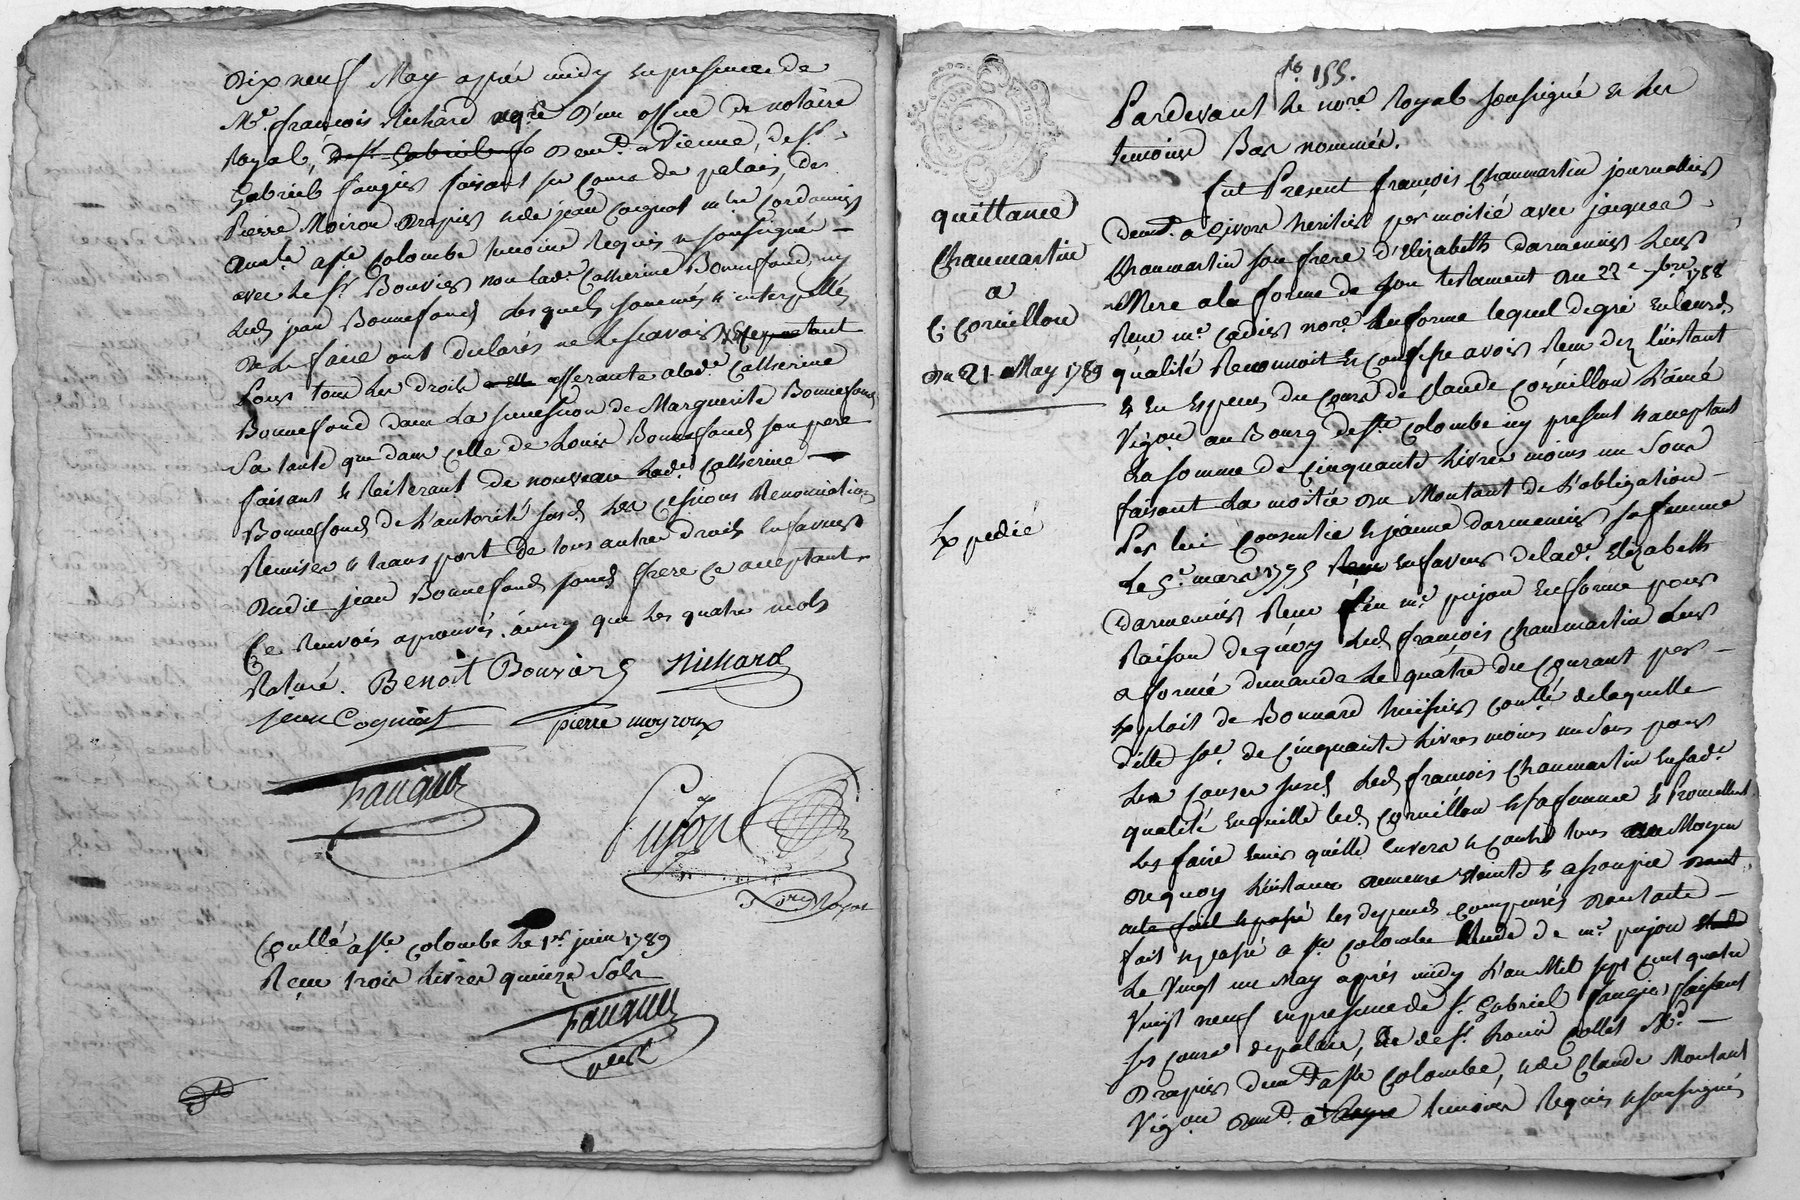 Dix neuf May après midy en presence de
Mre. françois Richard d'un office de notaire
Royal, demt. a Vienne, de sr.
Gabriel faugier faisant ses cours de palais, de
Pierre Moirou Drapier & de jean Cognat me. Cordonnier
a ste Colombe temoins Requis & soussigné
avec le sr. Bouvier non lade. Catherine Bonnefond, ny
led. jean Bonnefond lesquels sommés & interpellés
de le faire ont declarés ne le scavoir
tous les droits afferants a lade. Catherine
Bonnefond dans La succession de Marguerite Bonnefond
Sa tante que dans celle de Louis Bonnefond son pere
faisant & Reiterant de nouveau lade. Catherine
Bonnefond de L'autorité susd. les Cessions Renonciations
Remises & transport de tous autres droits en faveur
dudit jean Bonnefond susd. frere ce acceptant
Ce Renvois aprouvés, ainsy que les quatre mots
Raturé. Benoit Bouvier Richard
jean Cognat pierre moyroux
faugier
Pujon
nore. Royal
Conllé a ste Colombe le 1er juin 1789
Reçu trois Livres quinze Sols
faugier
fo 155.
Pardevant le nore. Royal soussigné & les
temoins Bas nommés.
fut Present françois Chaumartin journalier
demt. a Givors heritier par moitié avec jacques
Chaumartin son frere d'Elizabeth darmencier leur
Mere a la forme de son testament du 22e. 1788
Recu me. nore. En forme lequel de gré en lade.
qualité Reconnoit & Confesse avoir Reçu dez l'instant
& en Especes du Cours de Claude Cornillon L'ainé
Vigon au Bourg de ste Colombe icy present & acceptant
La somme de Cinquante Livres moins un Sous
faisant La moitié du Montant de L'obligation
Par lui Consentie & jeanne darmencier sa femme
Le 5e. mars 1775 en faveur de lade. Elizabeth
darmencier Reçu feu me. pujon En forme pour
Raison de quoy led. françois Chaumartin Leur
a formé demande le quatre du Courant par
Exploit de Bonnard huissier Conllé de laquelle
dite se. de Cinquante Livres moins un Sous pour
Les Causes susd. led. françois Chaumartin en sade.
qualité en quitte led. Cornillon & sa femme & Promettant
Les faire tenir quitte Envers & Contre tous au Moyen
de quoy L'instance demeure eteinte & assoupie
les depens compensés dont acte
fait & passé a ste Colombe Etude de me. pujon
Le Vingt un May après midy L'an Mil sept cent quatre
Vingt neuf en presence de sr. Gabriel faugier faisant
ses cours de palais, de sr. Louis Collet Md.
Drapier demt. a ste Colombe, & de Claude Montant
Vigon demt. a temoins Requis & soussignés
quittance
Chaumartin
a
C. Cornillon
Du 21 May 1789
Expedié